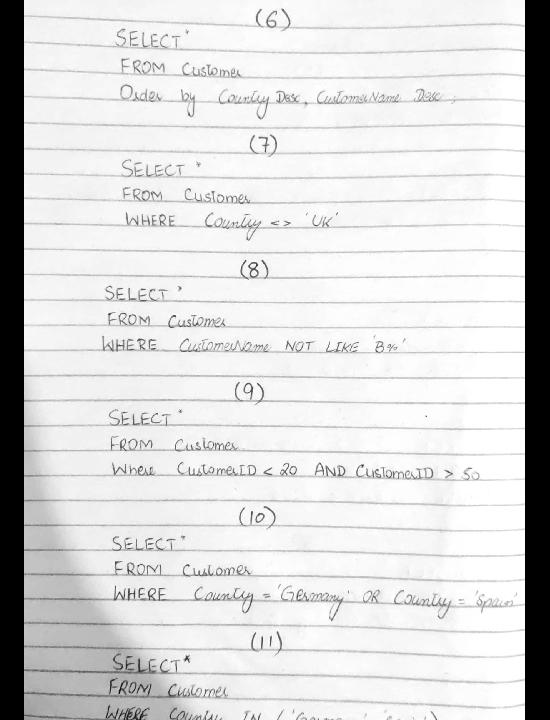 (6)
SELECT *
FROM Customer
Order by Country Desc, CustomerName Desc ;
(7)
SELECT *
FROM Customer
WHERE Country <> 'UK'
(8)
SELECT *
FROM Customer
WHERE CustomerName NOT LIKE 'B%'
(9)
SELECT *
FROM Customer
Where CustomerID < 20 AND CustomerID > 50
(10)
SELECT *
FROM Customer
WHERE Country = 'Germany' OR Country = 'Spain'
(11)
SELECT *
FROM Customer
WHERE Country IN (